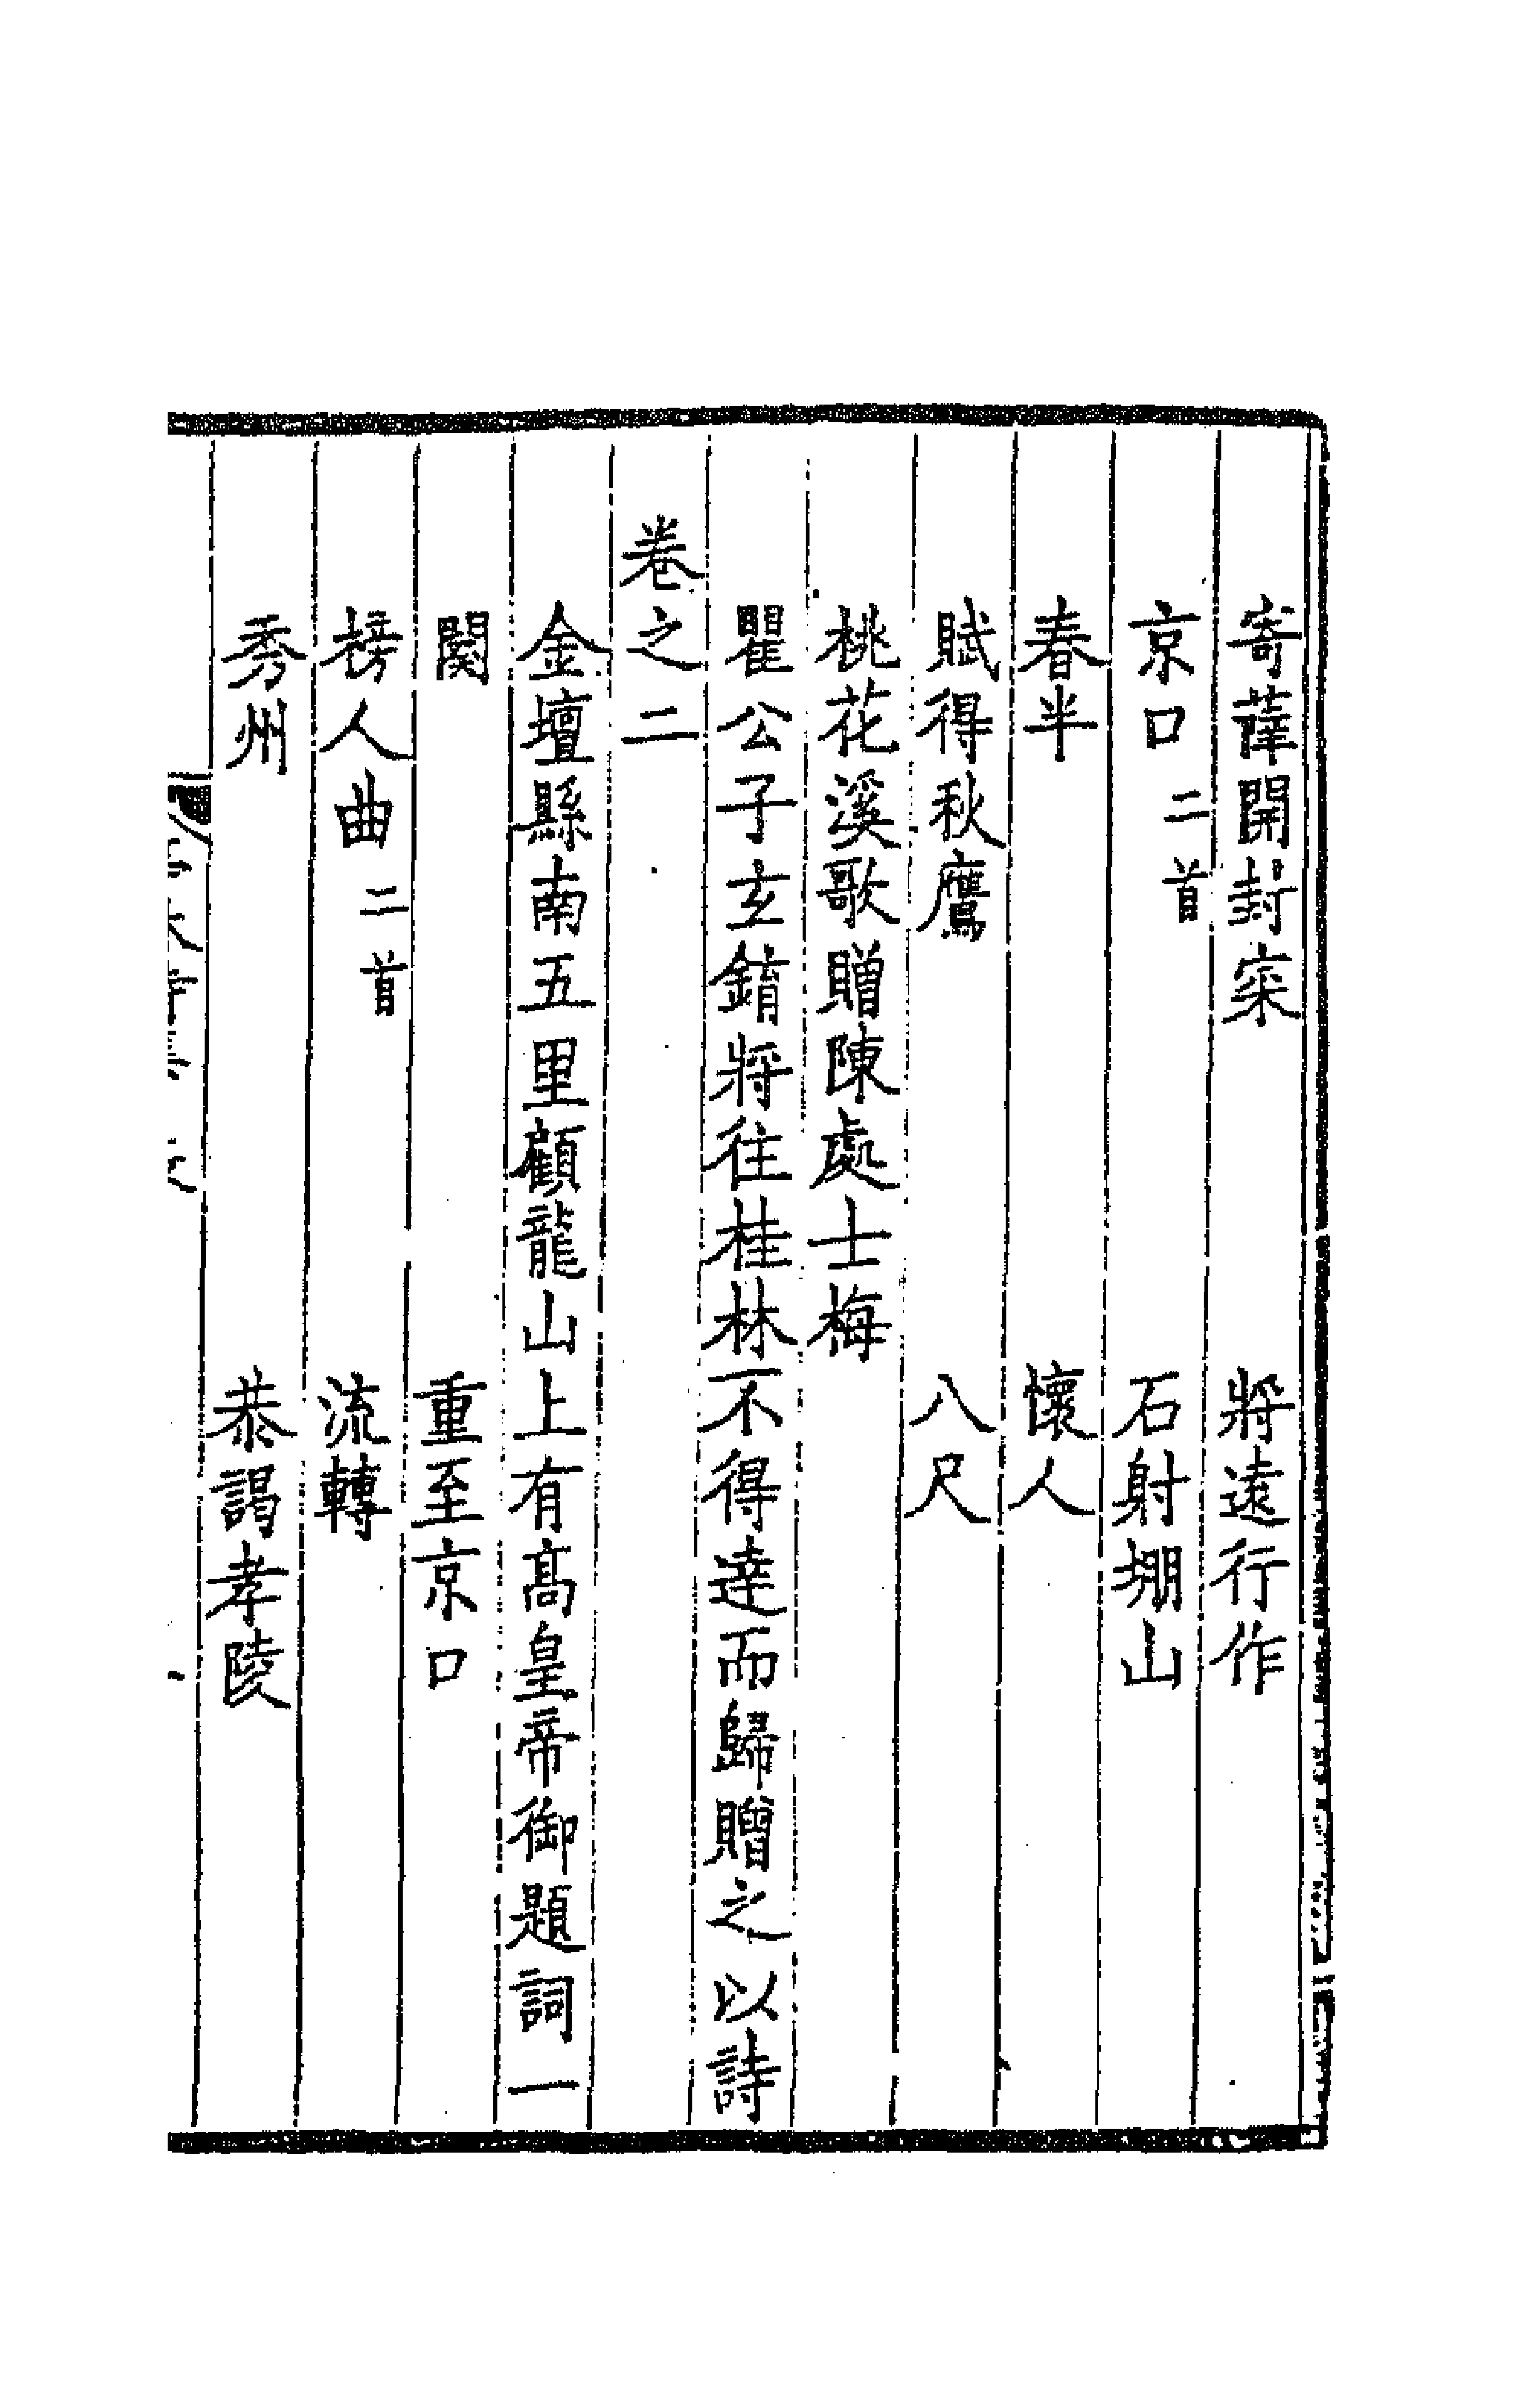 寄薛開封寀　將遠行作
京口二首　石射堋山
春半　懷人
賦得秋鷹　八尺
桃花溪歌贈陳處士梅
瞿公子玄錥將往桂林不得達而歸贈之以詩
卷之二
金壇縣南五里顧龍山上有高皇帝御題詞一
闋　重至京口
榜人曲二首　流轉
秀州　恭謁孝陵